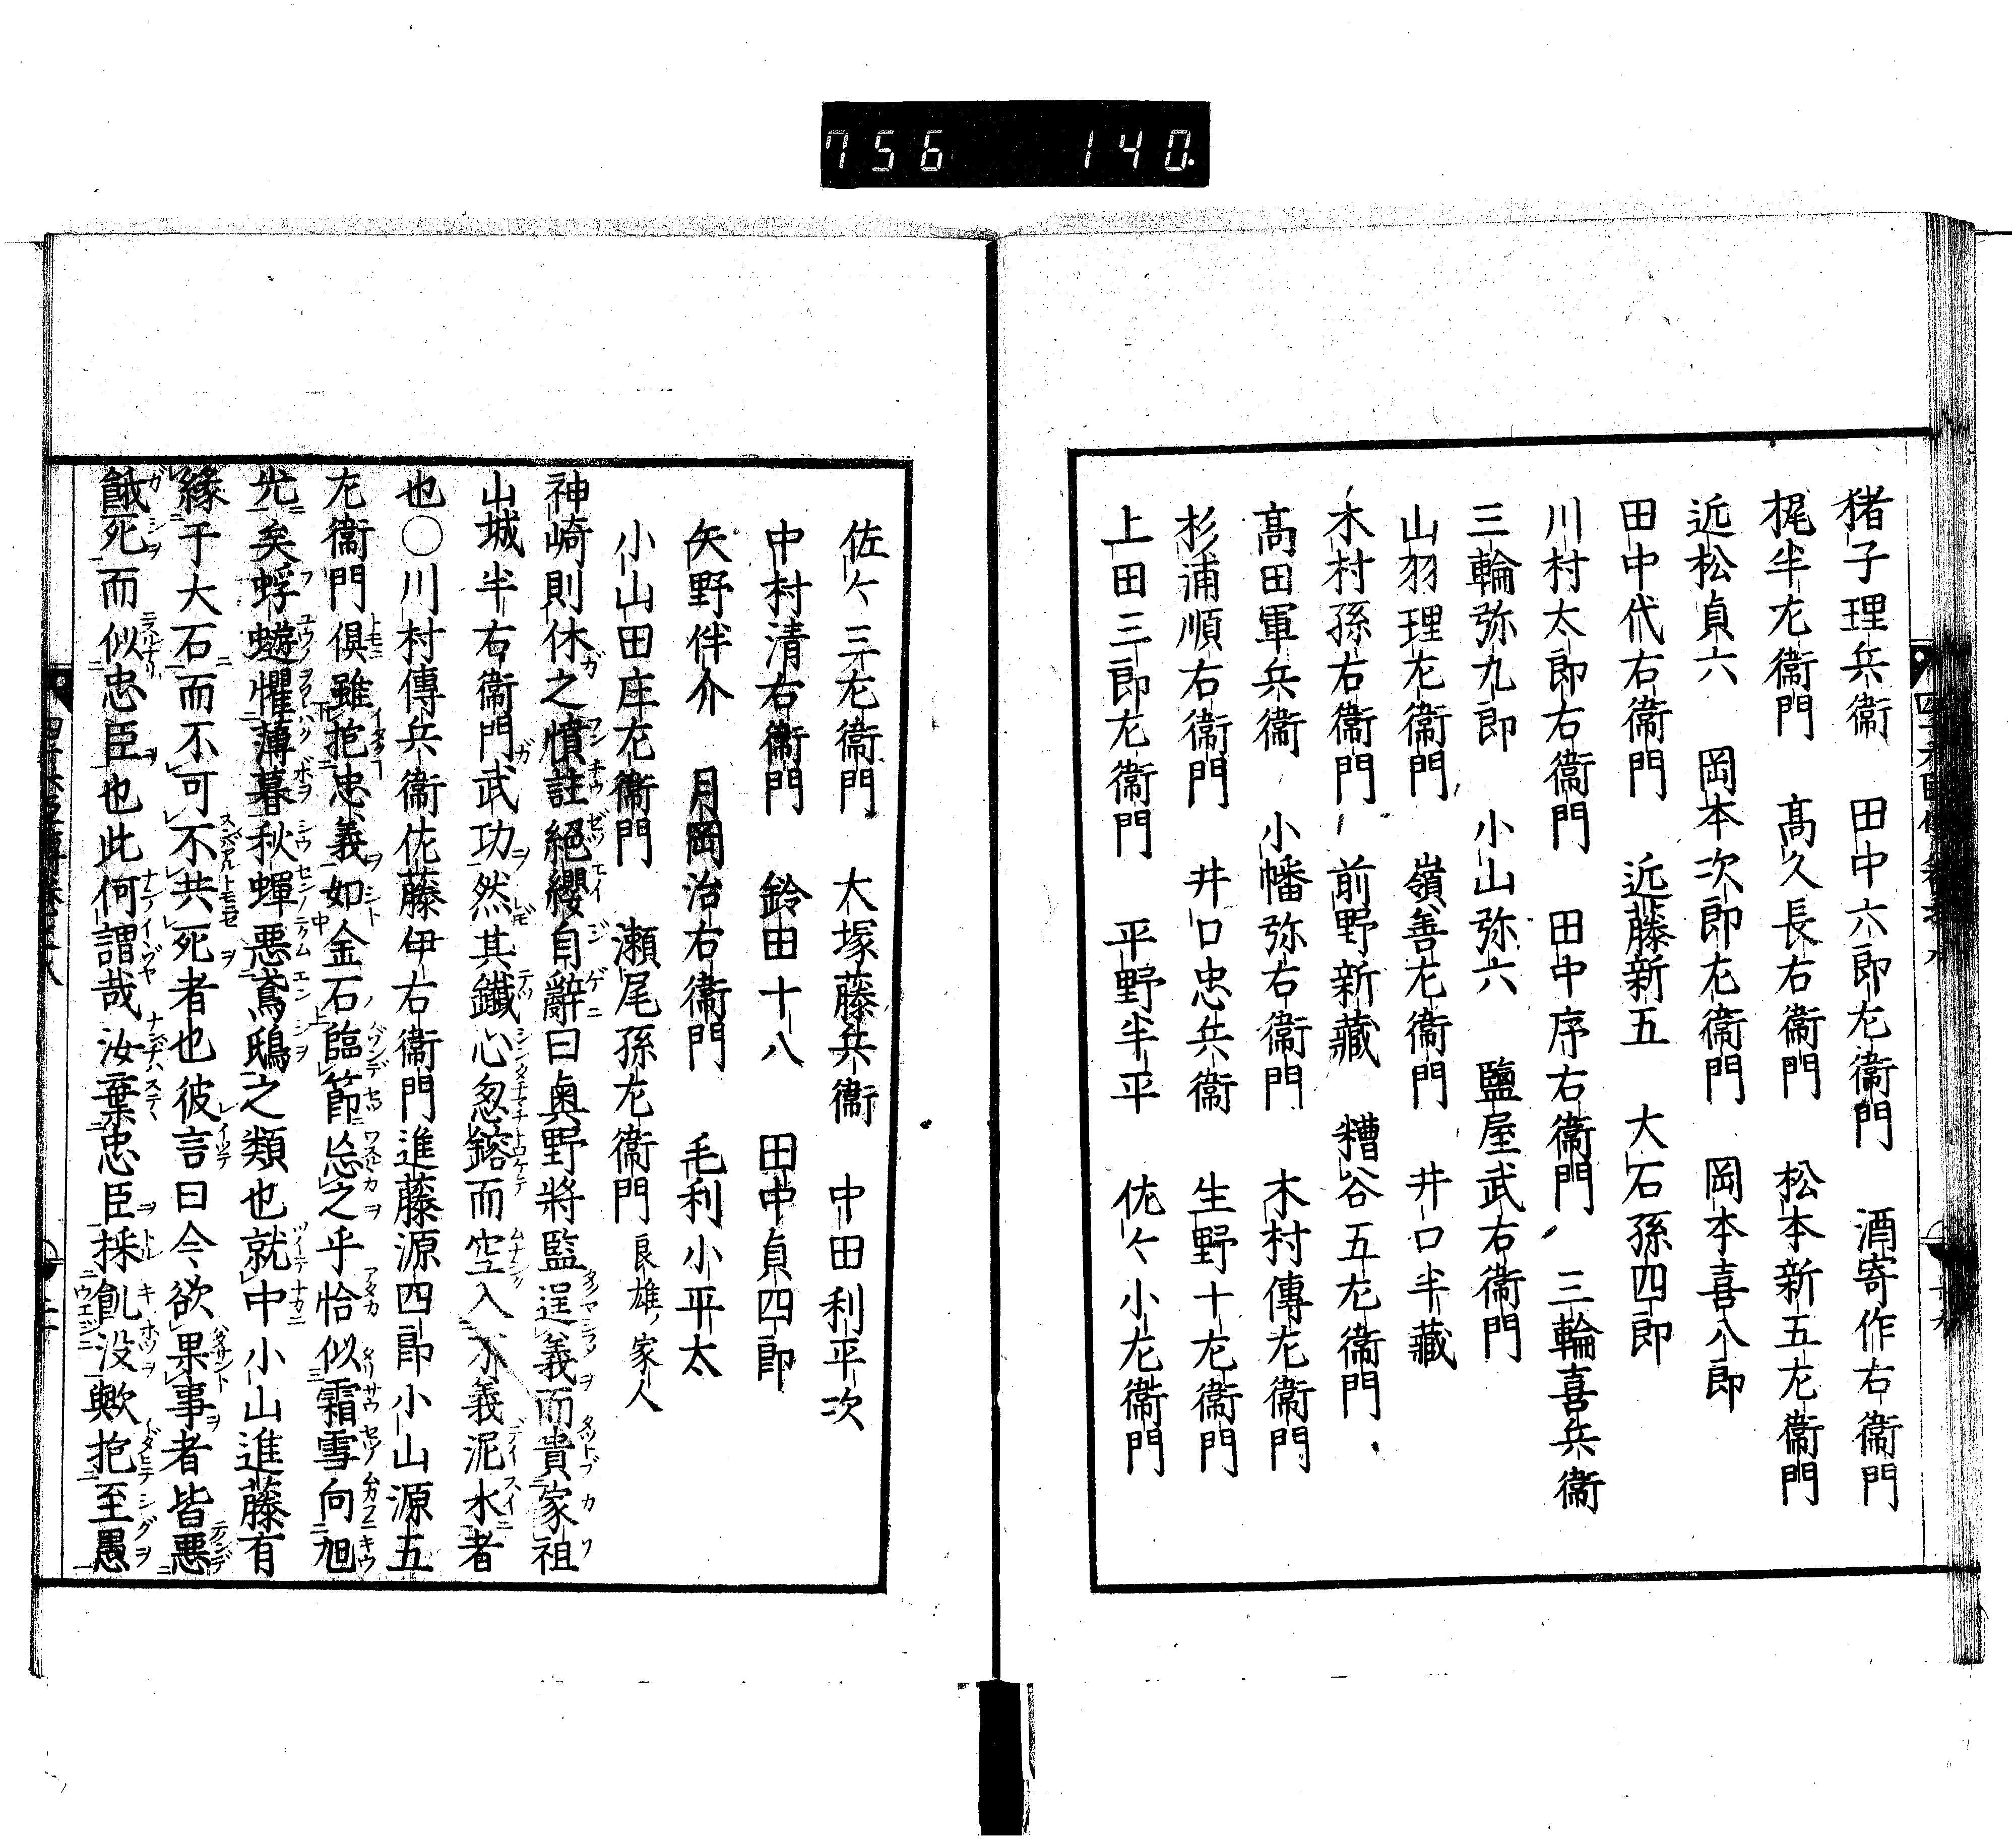 756 140.
猪子理兵衞 田中六郎左衞門 酒寄作右衞門
梶半左衞門 髙久長右衞門 松本新五左衞門
近松貞六 岡本次郎左衞門 岡本喜八郎
田中代右衞門 近藤新五 大石孫四郎
川村太郎右衞門 田中序右衞門 三輪喜兵衞
三輪弥九郎 小山弥六 鹽屋武右衞門
山羽理左衞門 嶺善左衞門 井口半藏
木村孫右衞門 前野新藏 糟谷五左衞門
髙田軍兵衞 小幡弥右衞門 木村傳左衞門
杉浦順右衞門 井口忠兵衞 生野十左衞門
上田三郎左衞門 平野半平 佐々小左衞門
佐々三左衞門 大塚藤兵衞 中田利平次
中村清右衞門 鈴田十八 田中貞四郎
矢野伴介 月岡治右衞門 毛利小平太
小山田庄左衞門 瀬尾孫左衞門 良雄ノ家人
神崎則休之憤註絕纓自辭曰奥野將監逞義而貴家祖
山城半右衞門武功然其鐵心忽鎔而空入不義泥水者
也○川村傳兵衞佐藤伊右衞門進藤源四郎小山源五
左衞門俱雖抱忠義如金石臨節忘之乎恰似霜雪向旭
光矣蜉蝣懼薄暮秋蟬惡鳶鴟之類也就中小山進藤有
緣于大石而不可不共死者也彼言曰今欲果事者皆惡
餓死而似忠臣也此何謂哉汝棄忠臣採飢没歟抱至愚